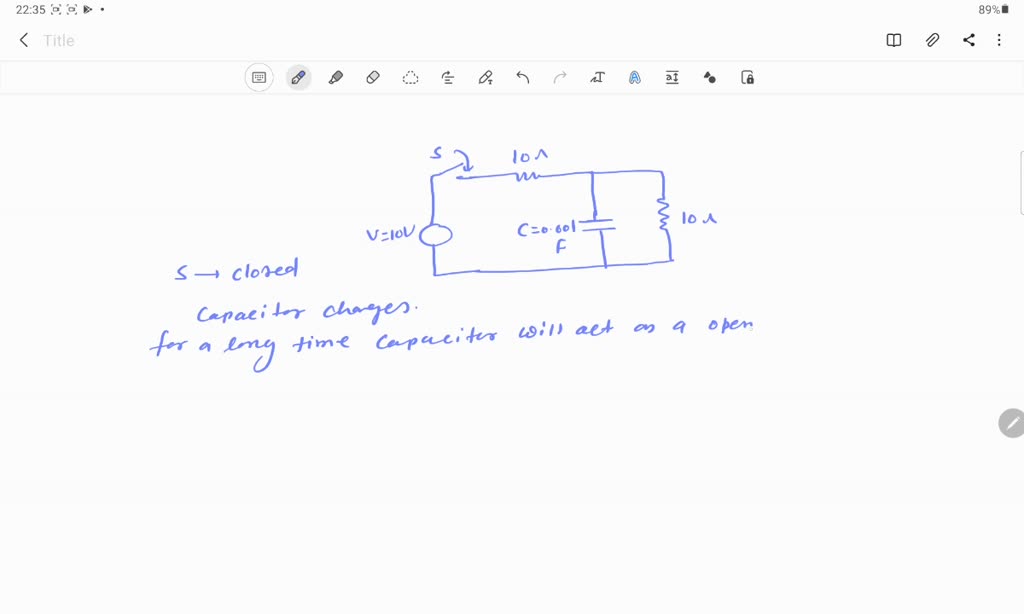 22:35
89%
Title
S
10Ω
V=10V
C=0.001
F
10Ω
S → closed
Capacitor charges.
for a long time capacitor will act as a open